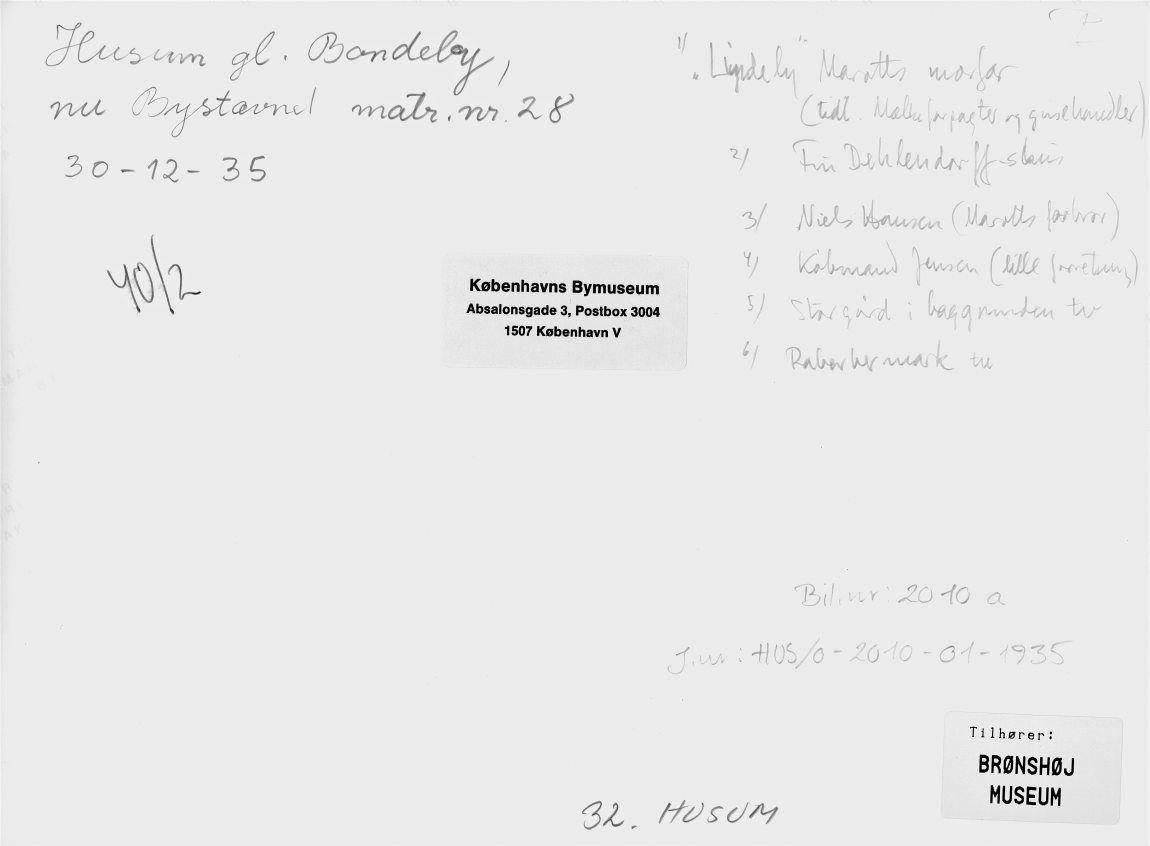 Husum gl. Bondeby,
nu Bystævnet matr. nr. 28
30-12-35
40/2
Københavns Bymuseum
Absalonsgade 3, Postbox 3004
1507 København V
1/ "Lindely" Marotts morfar
(tidl. Mælkeforpagter og grisehandler)
2/ Dehlendorff
3/ Niels Hansen (Marotts farbror)
4/ Købmand Jensen (lille forretning)
5/ Storgård i baggrunden tv
6/ Rabarbermark tv
Bil.nr: 2010 a
J.nr: HUS/0-2010-01-1935
Tilhører:
BRØNSHØJ
MUSEUM
32. HUSUM